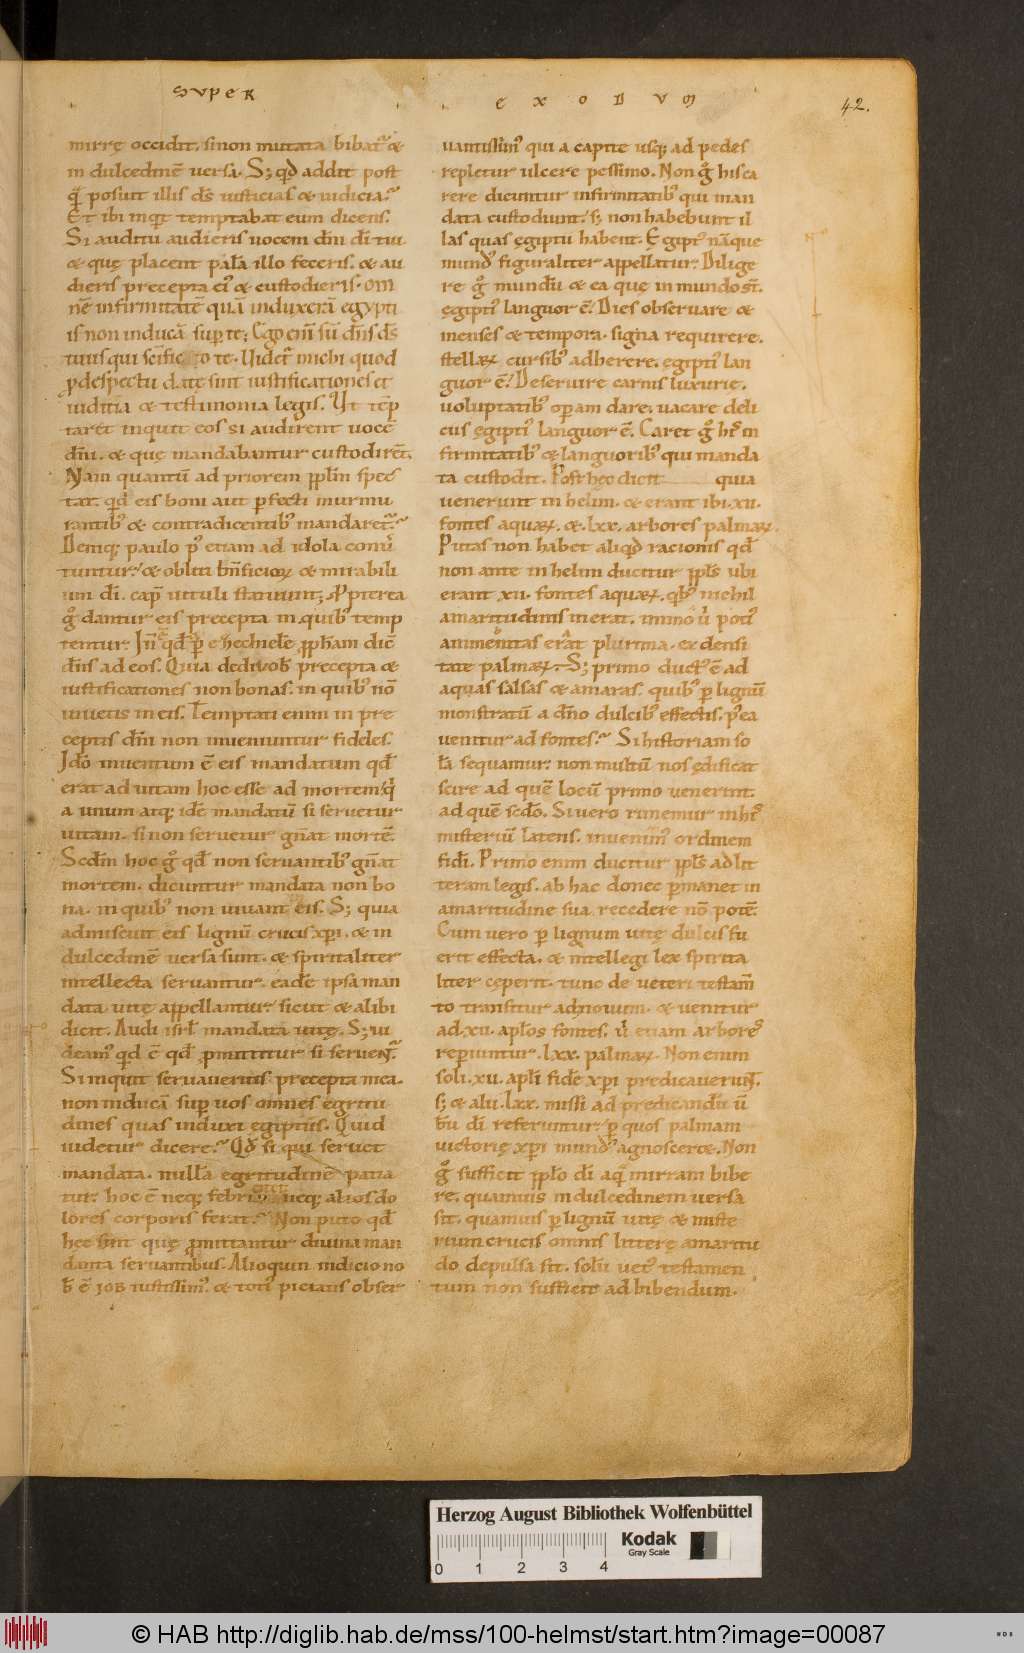 SUPER EXODUM 42.
mirrę occidit. si non mutata bibat᷒ &
in dulcedinē versa. S; qd̄ addit post
q̄ posuit illis dn̄s iusticias & iudicia?
Et ibi inquit temptabat eum dicens.
Si auditu audieris uocem dn̄i di tui
& quę placent palā illo feceris. & au
dieris precepta ei᷒ & custodieris. om
nē infirmitatē quā induxerā egypti
is non inducā sup te; Ego eni sū dn̄s ds̄
tuus qui te. Uidet᷒ michi quod
iustificationes et
iuditia & testimonia legis. Ut tēp
taret inquit eos si audirent uocē
dn̄i. & quę mandabantur custodirēt.
Nam quantū ad priorem pplm spec
tat. qid eis boni aut pfecti murmu
rantib᷒ & contradicentib᷒ mandaret᷒?
Deniq; paulo p᷒ etiam ad idola
tuntur. & obliti bn̄ficioꝝ & mirabili
um di. cap᷒ uituli statuunt; Ꝓpterea
g̊ dantur eis precepta in quib᷒ temp
tentur. In qd̄ p hezechielē ꝓpham dic̄
dn̄s ad eos. Quia dedi uob̄ precepta &
iustificationes non bonas. in quib᷒ nō
uiuetis in eis. Temptati enim in pre
ceptis dn̄i non inueniuntur fideles.
Ido inuentum ē eis mandatum qd̄
erat ad uitam hoc esse ad mortem. q
a unum atq; idē mandatū si seruetur
uitam. si non seruetur gn̄at mortē.
Scdm hoc g̊ qd̄ non seruantib᷒ gn̄at
mortem. dicuntur mandata non bo
na. in quib᷒ non uiuant eis. S; quia
admiscuit eis lignū crucis xpi. & in
dulcedinē versa sunt. & spiritaliter
intellecta seruantur. eadē ipsa man
data uitę appellantur. sicut & alibi
dicit. Audi isrl̄ mandata uitę. S; ui
deam᷒ qid ē qd̄ ꝓmittitur si seruent᷒.
Si inquit seruaueritis precepta mea.
non inducā sup uos omnes egritu
dines quas induxi egiptiis. Quid
uidetur dicere? Qd̄ si qui seruet
mandata. nullā egritudinē patia
tur. hoc ē neq; febriat neq; alios do
lores corporis ferat? Non puto qd̄
hęc sint quę ꝓmittantur diuina man
data seruantibus. Alioquin indicio no
b̄ ē iob iustissim᷒. & toti᷒ pietatis obser
uantissim᷒ qui a capite usq; ad pedes
repletur ulcere pessimo. Non g̊ his ca
rere dicuntur infirmitatib᷒ qui man
data custodiunt. s; non habebunt il
las quas ęgiptii habent. Egipt᷒ nāque
mund᷒ figuraliter appellatur. Dilige
re g̊ mundū & ea quę in mundo st̄.
ęgipti᷒ languor ē. Dies obseruare &
menses & tempora. signa requirere.
stellaꝝ cursib᷒ adherere. ęgipti᷒ lan
guor ē. Deseruire carnis luxurię.
uoluptatib᷒ operam dare. uacare deli
ciis ęgipti᷒ languor ē. Caret g̊ his in
firmitatib᷒ & languorib᷒ qui manda
ta custodit. Post hęc dicit quia
uenerunt in helim. & erant ibi. xii.
fontes aquaꝝ. &. lxx. arbores palmaꝝ.
Putas non habet aliqd̄ racionis qd̄
non ante in helim ducitur ppl̄s ubi
erant xii. fontes aquaꝝ. qib᷒ nichil
amaritudinis inerat. immo ū poti᷒
ammenitas erat plurima. ex densi
tate palmaꝝ. S; primo duct᷒ ē ad
aquas salsas & amaras. quib᷒ p lignū
monstratū a dn̄o dulcib᷒ effectis. p᷒ea
uenitur ad fontes? Si historiam so
lā sequamur. non multū nos ędificat
scire ad quē locū primo uenerint.
ad quē scdo. Si uero rimemur in his
misteriū latens. inuenim᷒ ordinem
fidi. Primo enim ducitur ppl̄s ad lit
teram legis. ab hac donec pmanet in
amaritudine sua recedere nō potē.
Cum uero p lignum uitę dulcis fu
erit effecta. & intellegi lex spirita
liter ceperit. tunc de ueteri testam̄
to transitur ad nouum. & uenitur
ad. xii. aplos fontes. ū etiam arbores
repiuntur. lxx. palmaꝝ. Non enim
soli. xii. apli fidē xpi predicauerunt.
s; & alii. lxx. missi ad predicandū ū
bū di referuntur. p quos palmam
uictorię xpi mund᷒ agnosceret. Non
g̊ sufficit pplo di aquā mirram bibe
re. quamuis in dulcedinem uersa
sit. quamuis p lignū uitę & miste
rium crucis omnis litterę amaritu
do depulsa sit. solū uet᷒ testamen
tum non sufficit ad bibendum.
Herzog August Bibliothek Wolfenbüttel
0 1 2 3 4
Kodak
Gray Scale
© HAB http://diglib.hab.de/mss/100-helmst/start.htm?image=00087